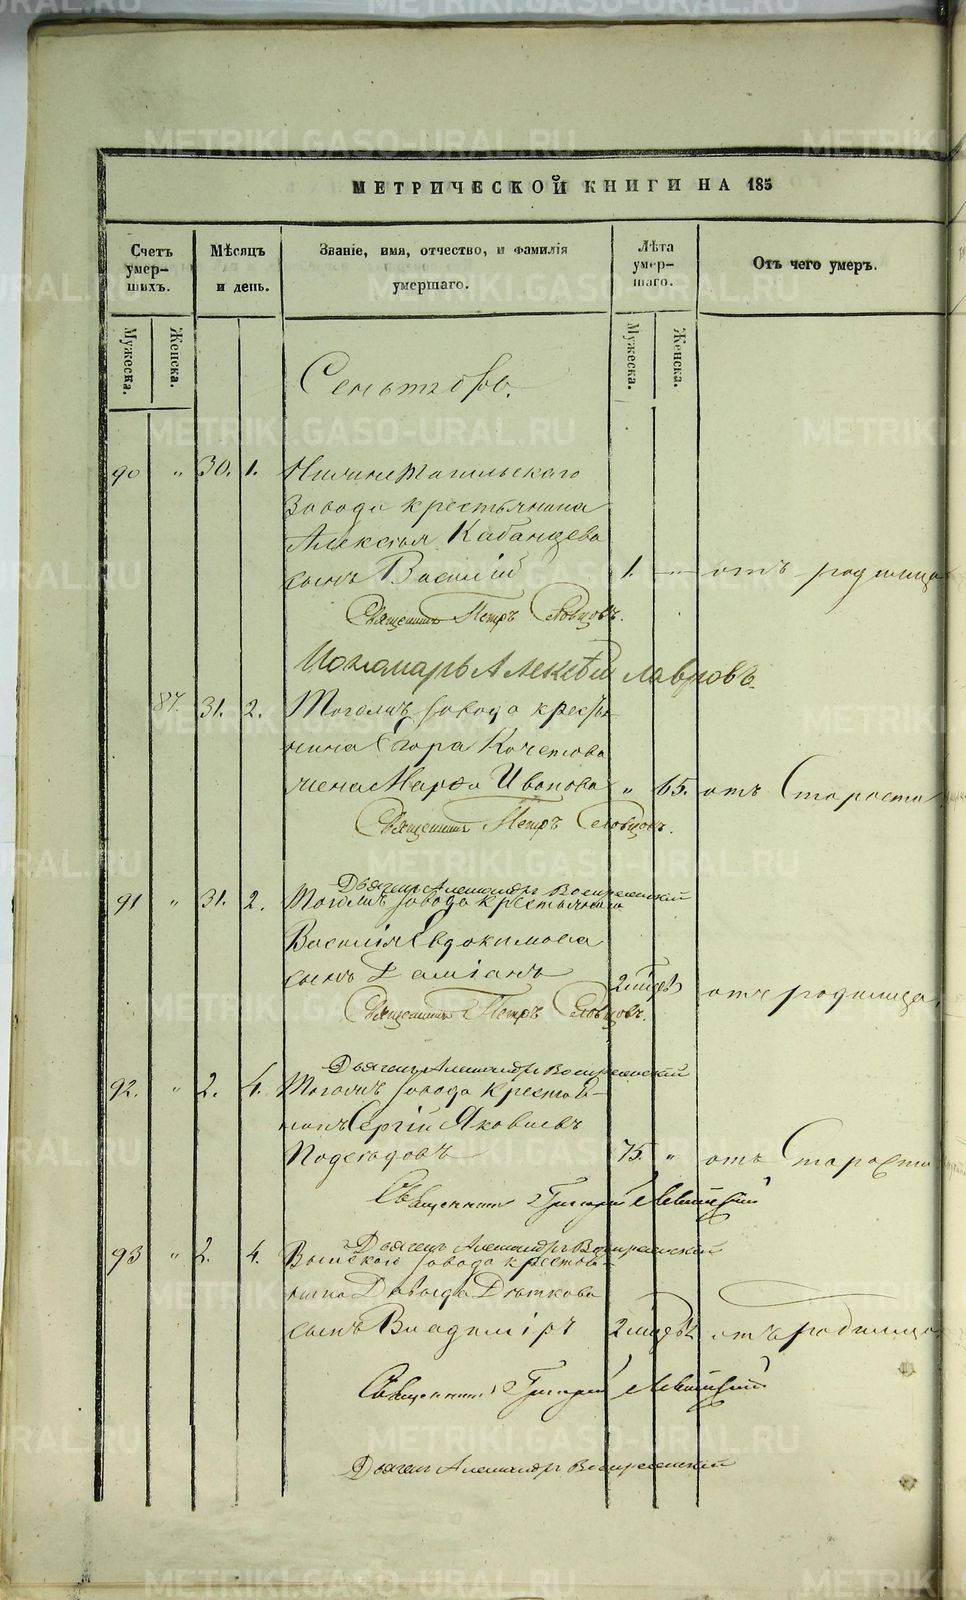 МЕТРИЧЕСКОЙ КНИГИ НА 185
Счетъ умер- шихъ.
Мѣсяцъ и день.
Званіе, имя, отчество, и фамилія умершаго.
Лѣта умер- шаго.
Отъ чего умеръ.
Мужеска.
Женска.
Мужеска.
Женска.
Сентябрь.
90 " 30. 1. Нижнетагильскаго
Завода крестьянина
Алексѣя Кабанцева
сынъ Василій 1. — отъ родимца
Священникъ Петръ Словцовъ.
Пономарь Алексѣй Лавровъ.
87. 31. 2. Тогожъ завода кресть-
янина Егора Кочетова
жена Марфа Иванова " 65. отъ Старости
Священникъ Петръ Словцовъ.
Дьячекъ Александръ Воскресенскій
91 " 31. 2. Тогожъ завода крестьянина
Василія Евдокимова
сынъ Даміанъ 2 отъ родимца.
Священникъ Петръ Словцовъ.
Дьячекъ Александръ Воскресенскій
92. " 2. 4. Тогожъ завода Крестья-
нинъ Сергій Яковлевъ
75. " отъ Старости
Священникъ Григорій Левитскій
Дьячекъ Александръ Воскресенскій
93 " 2. 4. Выйскаго завода крестья-
нина Давыда
сынъ Владиміръ 2 отъ родимца
Священникъ Григорій Левитскій
Дьячекъ Александръ Воскресенскій
METRIKI.GASO-URAL.RU